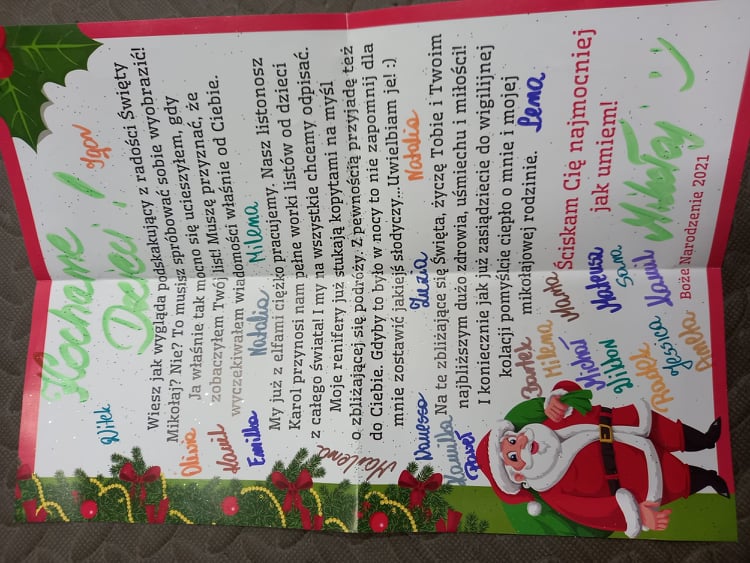 Kochane
Dzieci!
Igor
Witek
Wiesz jak wygląda podskakujący z radości Święty
Mikołaj? Nie? To musisz spróbować sobie wyobrazić!
Ja właśnie tak mocno się ucieszyłem, gdy
zobaczyłem Twój list! Muszę przyznać, że
wyczekiwałem wiadomości właśnie od Ciebie.
Oliwia
Kamil
Emilka Natalia Milena
My już z elfami ciężko pracujemy. Nasz listonosz
Karol przynosi nam pełne worki listów od dzieci
z całego świata! I my na wszystkie chcemy odpisać.
Moje renifery już stukają kopytami na myśl
o zbliżającej się podróży. Z pewnością przyjadę też
do Ciebie. Gdyby to było w nocy to nie zapomnij dla
mnie zostawić jakiejś słodyczy...Uwielbiam je! :)
Marlena
Vanessa Zuzia Natalia
Na te zbliżające się Święta, życzę Tobie i Twoim
najbliższym dużo zdrowia, uśmiechu i miłości!
I koniecznie jak już zasiądziecie do wigilijnej
kolacji pomyślcie ciepło o mnie i mojej
mikołajowej rodzinie.
Kamilka
Paweł
Lena
Bartek
Milena Maria
Ściskam Cię najmocniej
jak umiem!
Michał Mateusz
Wiktor Sara
Radek Kamil
Jessica
Aneta
Mikołaj :)
Boże Narodzenie 2021